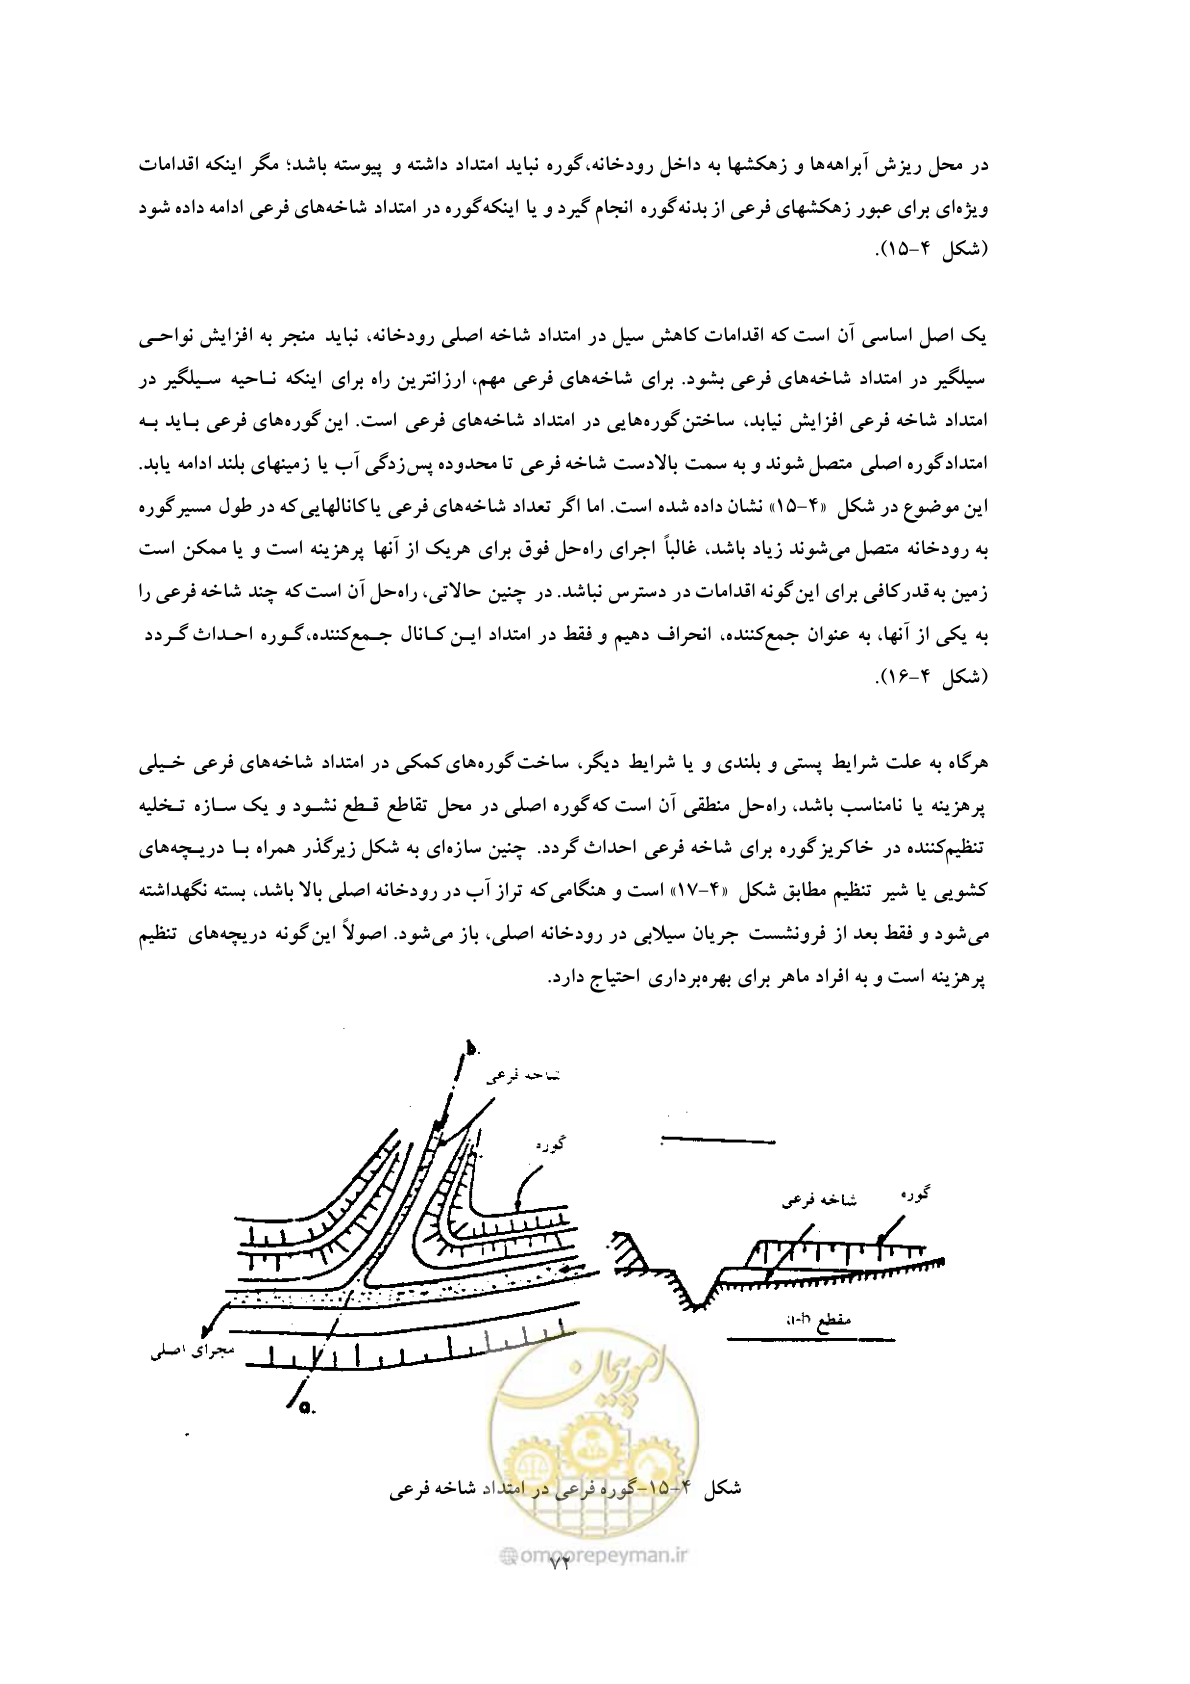 در محل ریزش آبراهه‌ها و زهکشها به داخل رودخانه،گوره نباید امتداد داشته و پیوسته باشد؛ مگر اینکه اقدامات
ویژه‌ای برای عبور زهکشهای فرعی از بدنه‌گوره انجام گیرد و یا اینکه‌گوره در امتداد شاخه‌های فرعی ادامه داده شود
(شکل ۴-۱۵).
یک اصل اساسی آن است که اقدامات کاهش سیل در امتداد شاخه اصلی رودخانه، نباید منجر به افزایش نواحـی
سیلگیر در امتداد شاخه‌های فرعی بشود. برای شاخه‌های فرعی مهم، ارزانترین راه برای اینکه نـاحیه سـیلگیر در
امتداد شاخه فرعی افزایش نیابد، ساختن گوره‌هایی در امتداد شاخه‌های فرعی است. این گوره‌های فرعی بـاید بـه
امتداد گوره اصلی متصل شوند و به سمت بالادست شاخه فرعی تا محدوده پس‌زدگی آب یا زمینهای بلند ادامه یابد.
این موضوع در شکل «۴-۱۵» نشان داده شده است. اما اگر تعداد شاخه‌های فرعی یا کانالهایی که در طول مسیر گوره
به رودخانه متصل می‌شوند زیاد باشد، غالباً اجرای راه‌حل فوق برای هریک از آنها پرهزینه است و یا ممکن است
زمین به قدر کافی برای این گونه اقدامات در دسترس نباشد. در چنین حالاتی، راه‌حل آن است که چند شاخه فرعی را
به یکی از آنها، به عنوان جمع‌کننده، انحراف دهیم و فقط در امتداد ایـن کـانال جـمع‌کننده،گـوره احـداث گـردد
(شکل ۴-۱۶).
هرگاه به علت شرایط پستی و بلندی و یا شرایط دیگر، ساخت گوره‌های کمکی در امتداد شاخه‌های فرعی خـیلی
پرهزینه یا نامناسب باشد، راه‌حل منطقی آن است که گوره اصلی در محل تقاطع قـطع نشـود و یک سـازه تـخلیه
تنظیم‌کننده در خاکریز گوره برای شاخه فرعی احداث گردد. چنین سازه‌ای به شکل زیرگذر همراه بـا دریـچه‌های
کشویی یا شیر تنظیم مطابق شکل «۴-۱۷» است و هنگامی که تراز آب در رودخانه اصلی بالا باشد، بسته نگهداشته
می‌شود و فقط بعد از فرونشست جریان سیلابی در رودخانه اصلی، باز می‌شود. اصولاً این گونه دریچه‌های تنظیم
پرهزینه است و به افراد ماهر برای بهره‌برداری احتیاج دارد.
b.
شاخه فرعی
گوره
گوره
شاخه فرعی
مقطع
مجرای اصلی
a.
امور پیمان
شکل ۴-۱۵-گوره فرعی در امتداد شاخه فرعی
@omoorepeyman.ir
۷۲